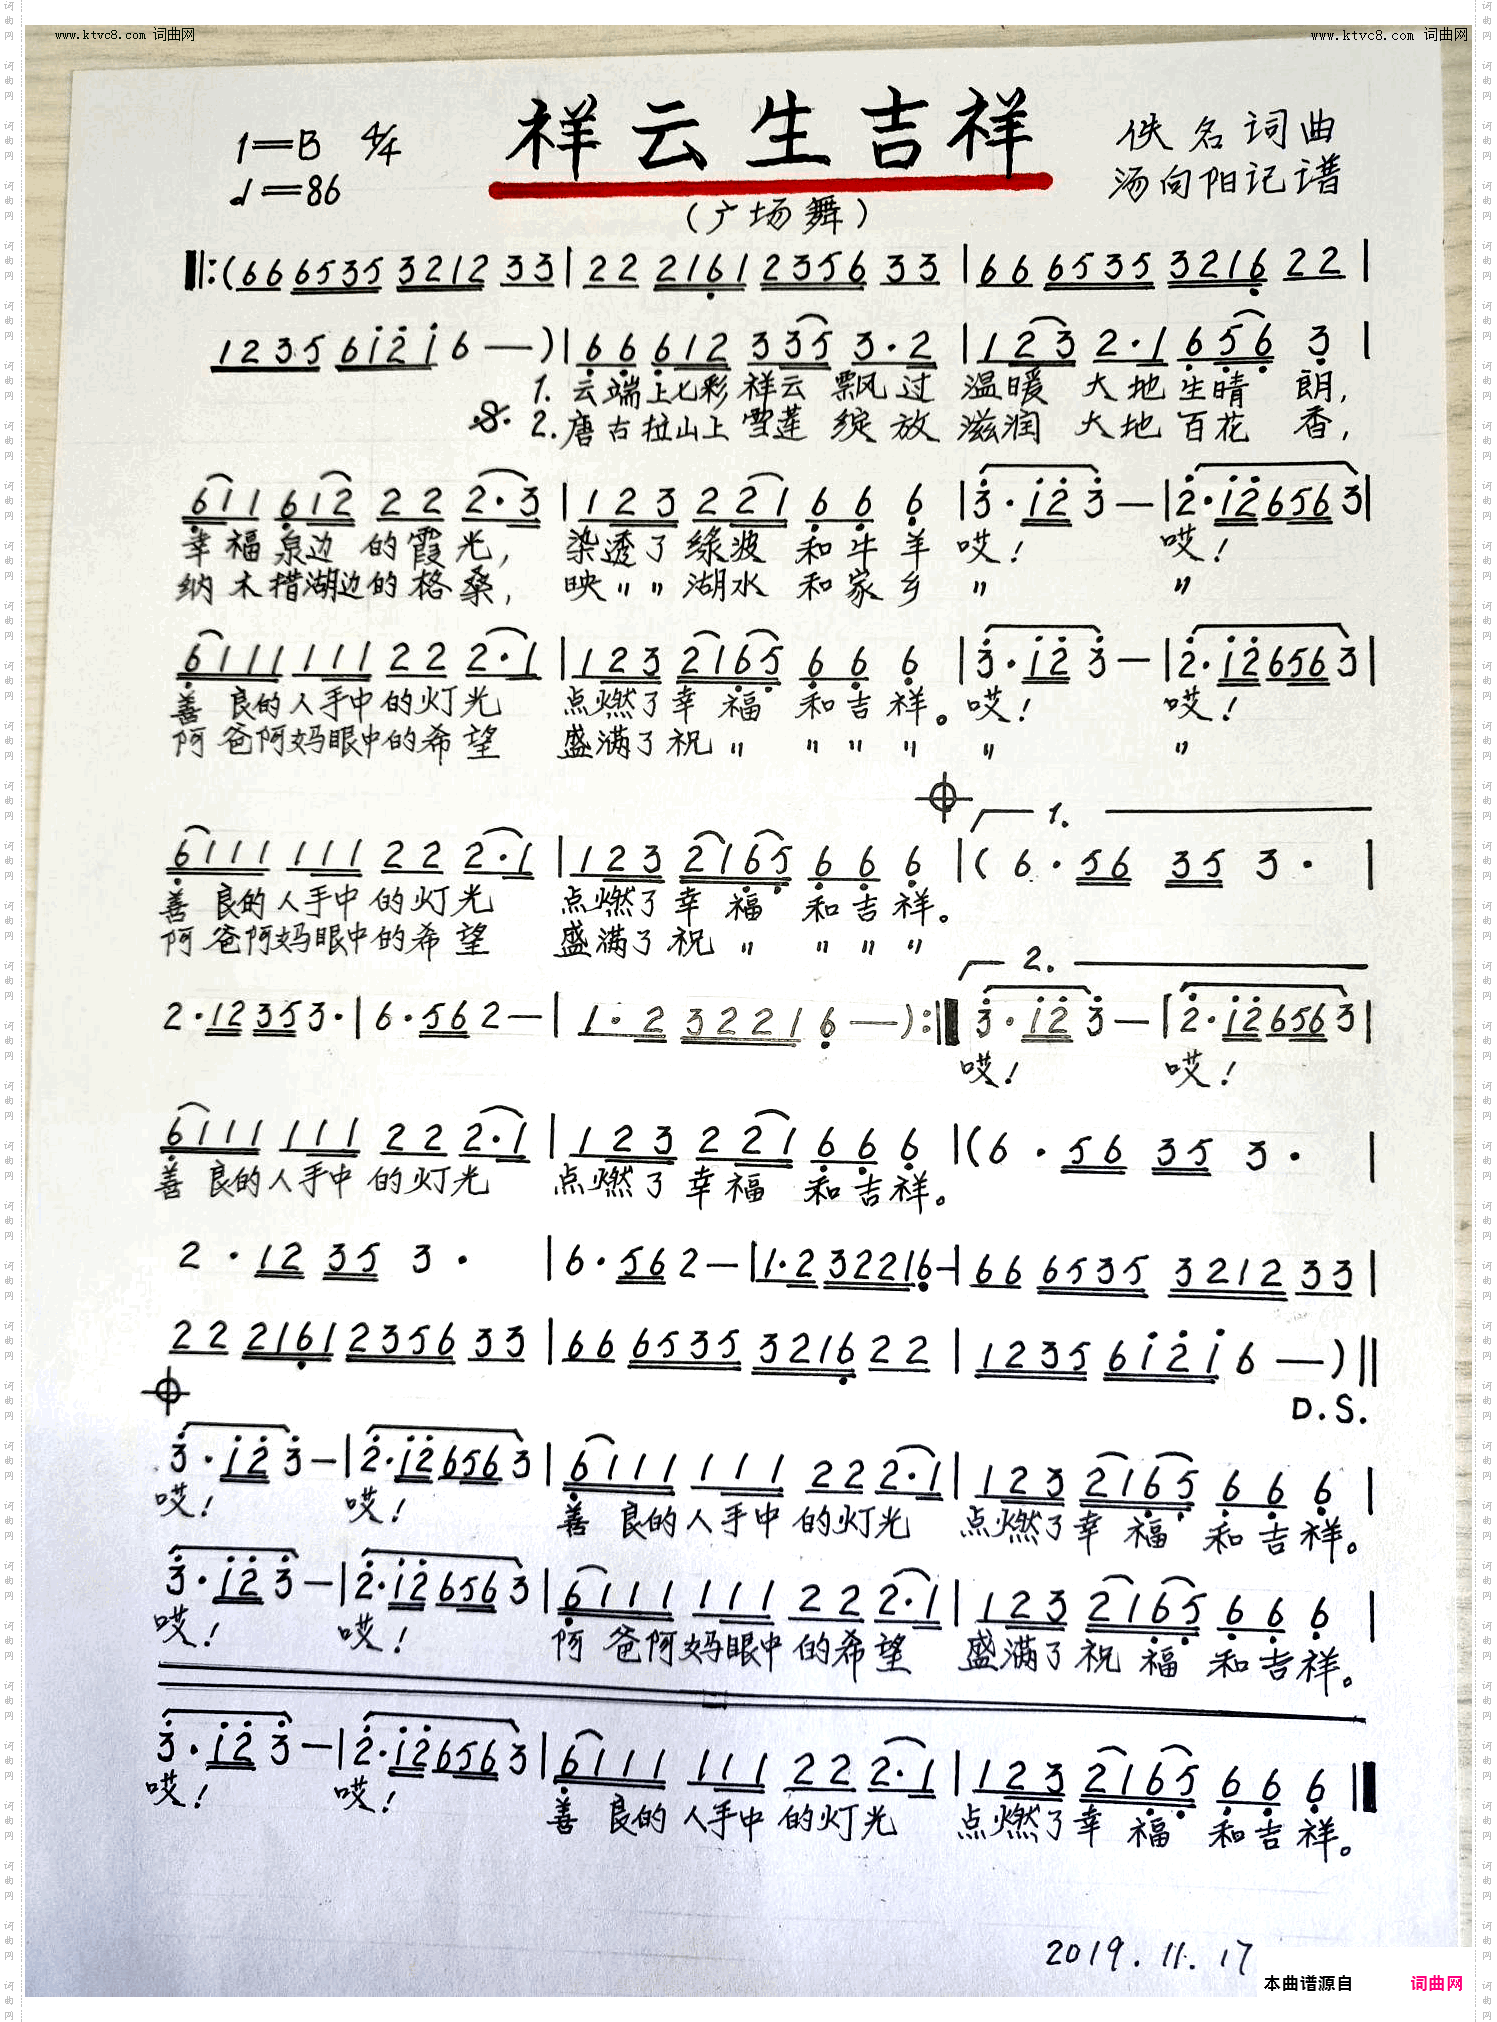 www.ktvc8.com 词曲网 www.ktvc8.com 词曲网
祥云生吉祥
1=B 4/4 佚名词曲
♩=86 汤向阳记谱
(广场舞)
‖:(66 6535 3212 33 | 22 2161 2356 33 | 66 6535 3216 22 |
1235 6i2i 6 —) | 66 612 335 3·2 | 123 2·1 656 3 |
1. 云端上七彩祥云 飘过 温暖 大地生晴 朗,
2. 唐古拉山上雪莲 绽放 滋润 大地百花 香,
611 612 22 2·3 | 123 221 66 6 | 3·i2 3 — | 2·i2 656 3 |
幸福泉边 的霞光, 染透了绿波 和牛羊 哎! 哎!
纳木措湖边的格桑, 映〃〃湖水 和家乡 〃 〃
6111 111 22 2·1 | 123 2165 66 6 | 3·i2 3 — | 2·i2 656 3 |
善良的人手中的灯光 点燃了幸福 和吉祥。哎! 哎!
阿爸阿妈眼中的希望 盛满了祝〃 〃〃〃 〃 〃
1.
6111 111 22 2·1 | 123 2165 66 6 | (6·56 35 3· |
善良的人手中的灯光 点燃了幸福 和吉祥。
阿爸阿妈眼中的希望 盛满了祝〃 〃〃〃
2.
2·12 35 3· | 6·56 2 — | 1·2 3221 6 —) :‖ 3·i2 3 — | 2·i2 656 3 |
哎! 哎!
6111 111 22 2·1 | 123 221 66 6 | (6·56 35 3· |
善良的人手中 的灯光 点燃了幸福 和吉祥。
2·12 35 3· | 6·56 2 — | 1·2 32216 — | 66 6535 3212 33 |
22 2161 2356 33 | 66 6535 3216 22 | 1235 6i2i 6 —) ‖
D.S.
3·i2 3 — | 2·i2 656 3 | 6111 111 22 2·1 | 123 2165 66 6 |
哎! 哎! 善良的人手中 的灯光 点燃了幸福 和吉祥。
3·i2 3 — | 2·i2 656 3 | 6111 111 22 2·1 | 123 2165 66 6 |
哎! 哎! 阿爸阿妈眼中 的希望 盛满了祝福 和吉祥。
3·i2 3 — | 2·i2 656 3 | 6111 111 22 2·1 | 123 2165 66 6 ‖
哎! 哎! 善良的人手中 的灯光 点燃了幸福 和吉祥。
2019.11.17
本曲谱源自 词曲网